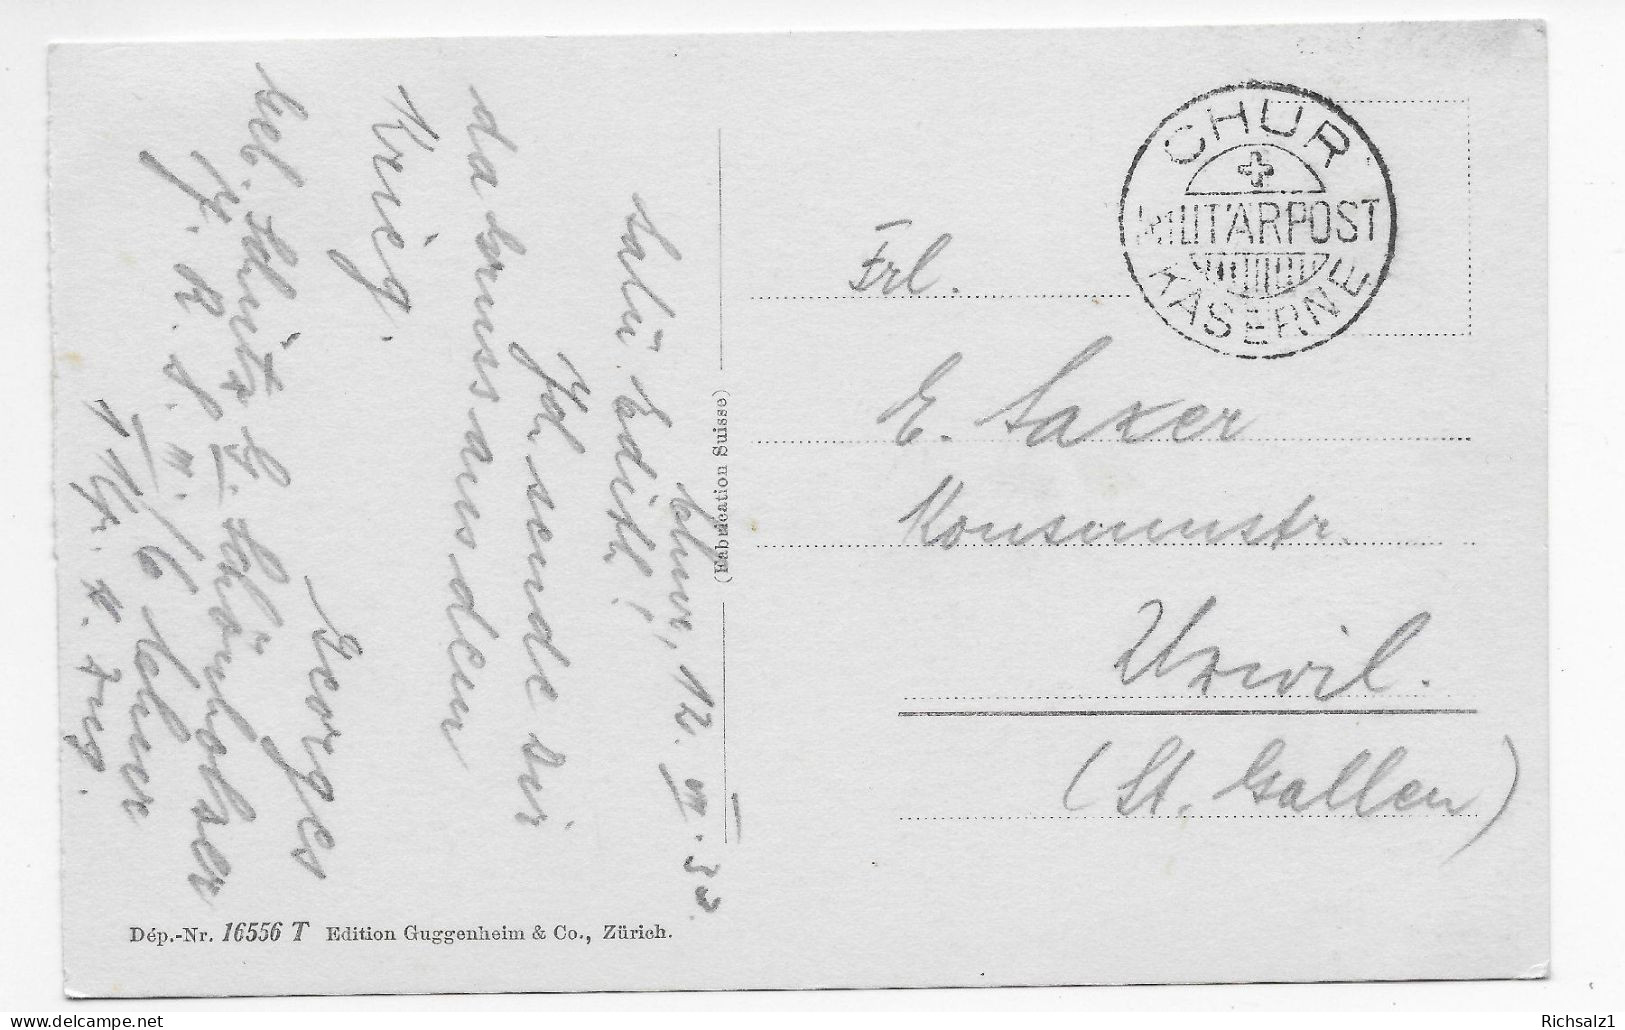 CHUR
MILITÄRPOST
KASERNE
Chur, 12. VII. 33
Salü Edith!
Ich sende dir
da Gruss aus dem
Krieg.
Georges
Geb. Schütz G. Schönholzer
J. R. S. III./6 Chur
1 Kp. 4. Zug.
Frl.
E. Saxer
Konsumstr.
Uzwil.
(St. Gallen)
(Fabrication Suisse)
Dép.-Nr. 16556 T Edition Guggenheim & Co., Zürich.
Richsalz1